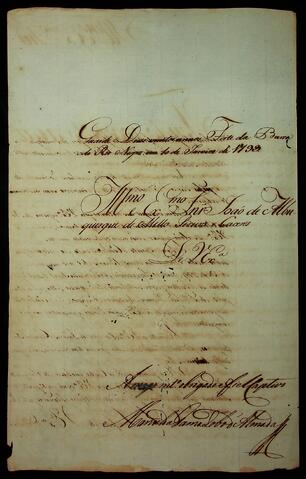 Guarde Deos muitos annos Forte da Barra
do Rio Negro em 10 de Janeiro de 1793
Illmo Exmo Snr João de Albu
querque de Mello Pereira e Caceres
De V Exa
Amigo mto obrigado e fiel Captivo
Manoel da Gama Lobo de Almada